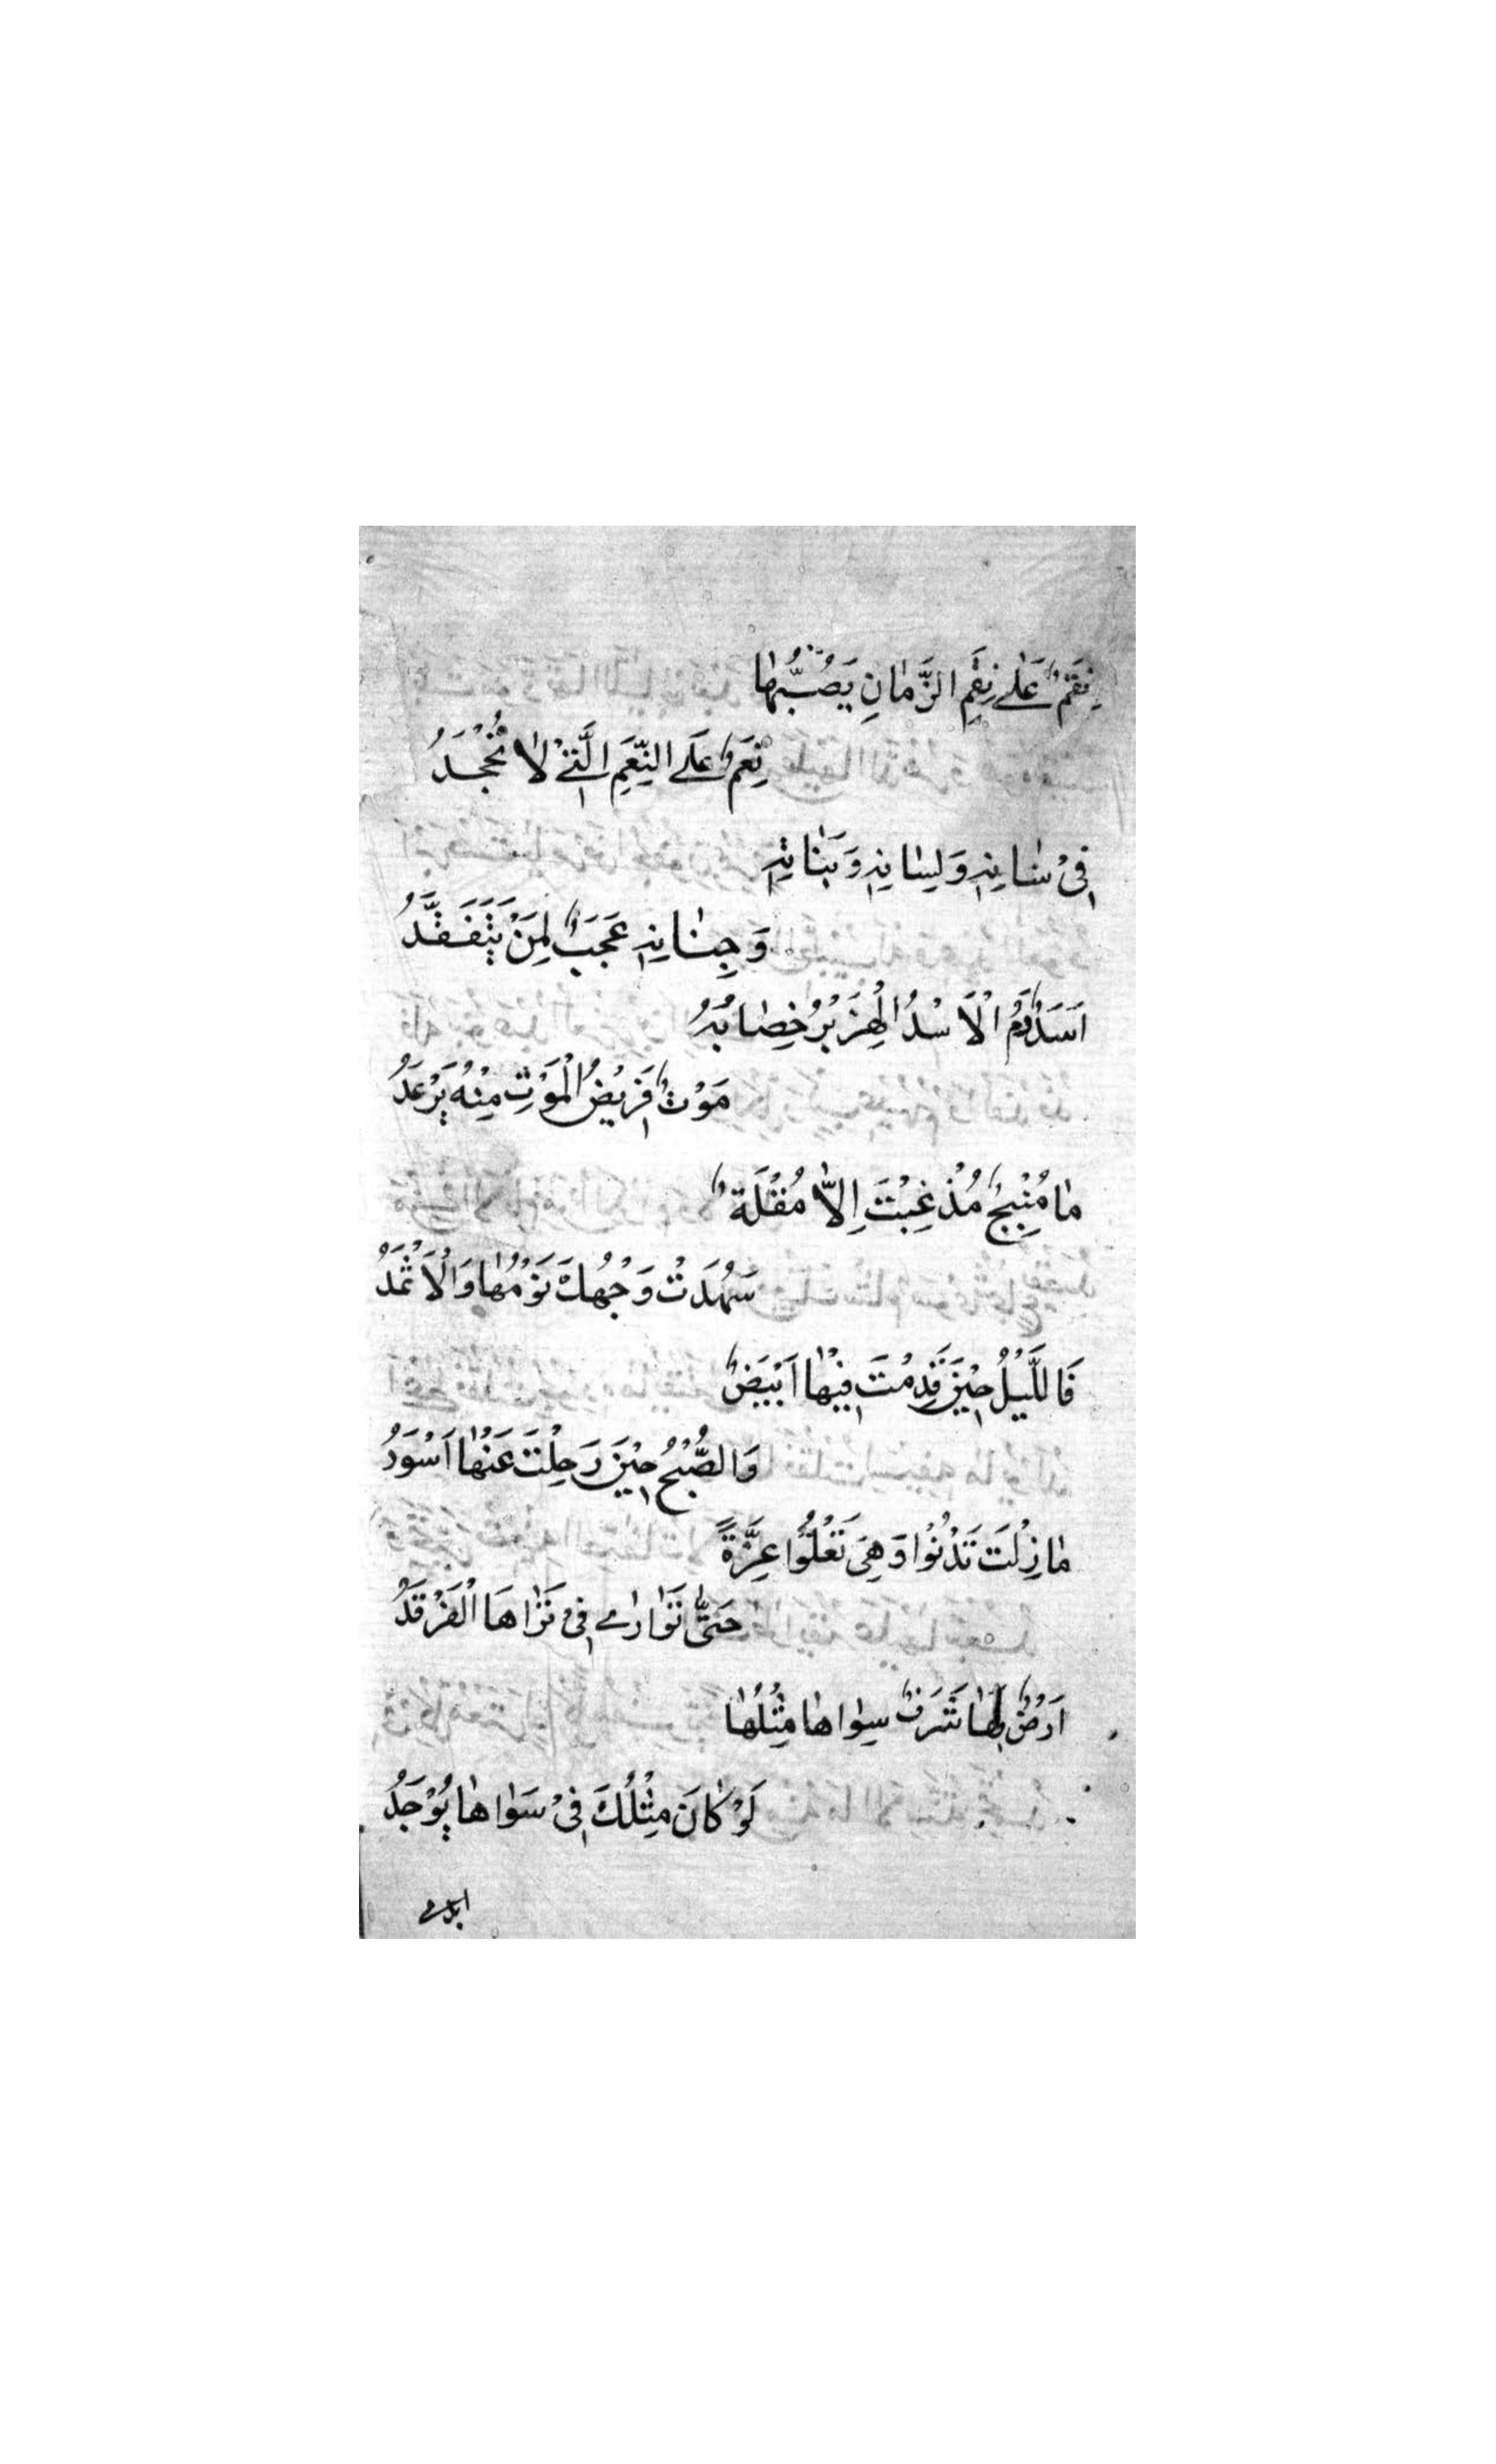 نِقَمٌ عَلٰى نِقَمِ الزَّمٰانِ يَصُبُّهٰا
نِعَمٌ عَلَى النِّعَمِ الَّتِىْ لٰا تُجْحَدُ
فِىْ شٰانِهٖ وَلِسٰانِهٖ وَبَنٰانِهٖ
وَجِنٰانِهٖ عَجَبٌ لِمَنْ يَتَفَقَّدُ
اَسَدٌ دَمُ الْاَسْدُ الْهِزَبْرُ خِضٰابُهُ
مَوْتٌ فَرِيْضُ الْمَوْتِ مِنْهُ يَرْعَدُ
مٰا مُنْبِجٌ مُذْ غِبْتَ اِلّٰا مُقْلَةٌ
سَهَدَتْ وَجْهُكَ نَوْمُهٰا وَالْاَثْمَدُ
فَاللَّيْلُ حِيْنَ قَدِمْتَ فِيْهٰا اَبْيَضٌ
وَالصُّبْحُ حِيْنَ رَحِلْتَ عَنْهٰا اَسْوَدُ
مٰا زِلْتَ تَدْنُوْا وَهِىَ تَعْلُوْا عِزَّةً
حَتّٰى تَوٰارٰى فِىْ ثَرٰاهَا الْفَرْقَدُ
اَرْضٌ لَهٰا شَرَفٌ سِوٰاهٰا مِثْلُهٰا
لَوْ كٰانَ مِثْلُكَ فِىْ سَوٰاهٰا يُوْجَدُ